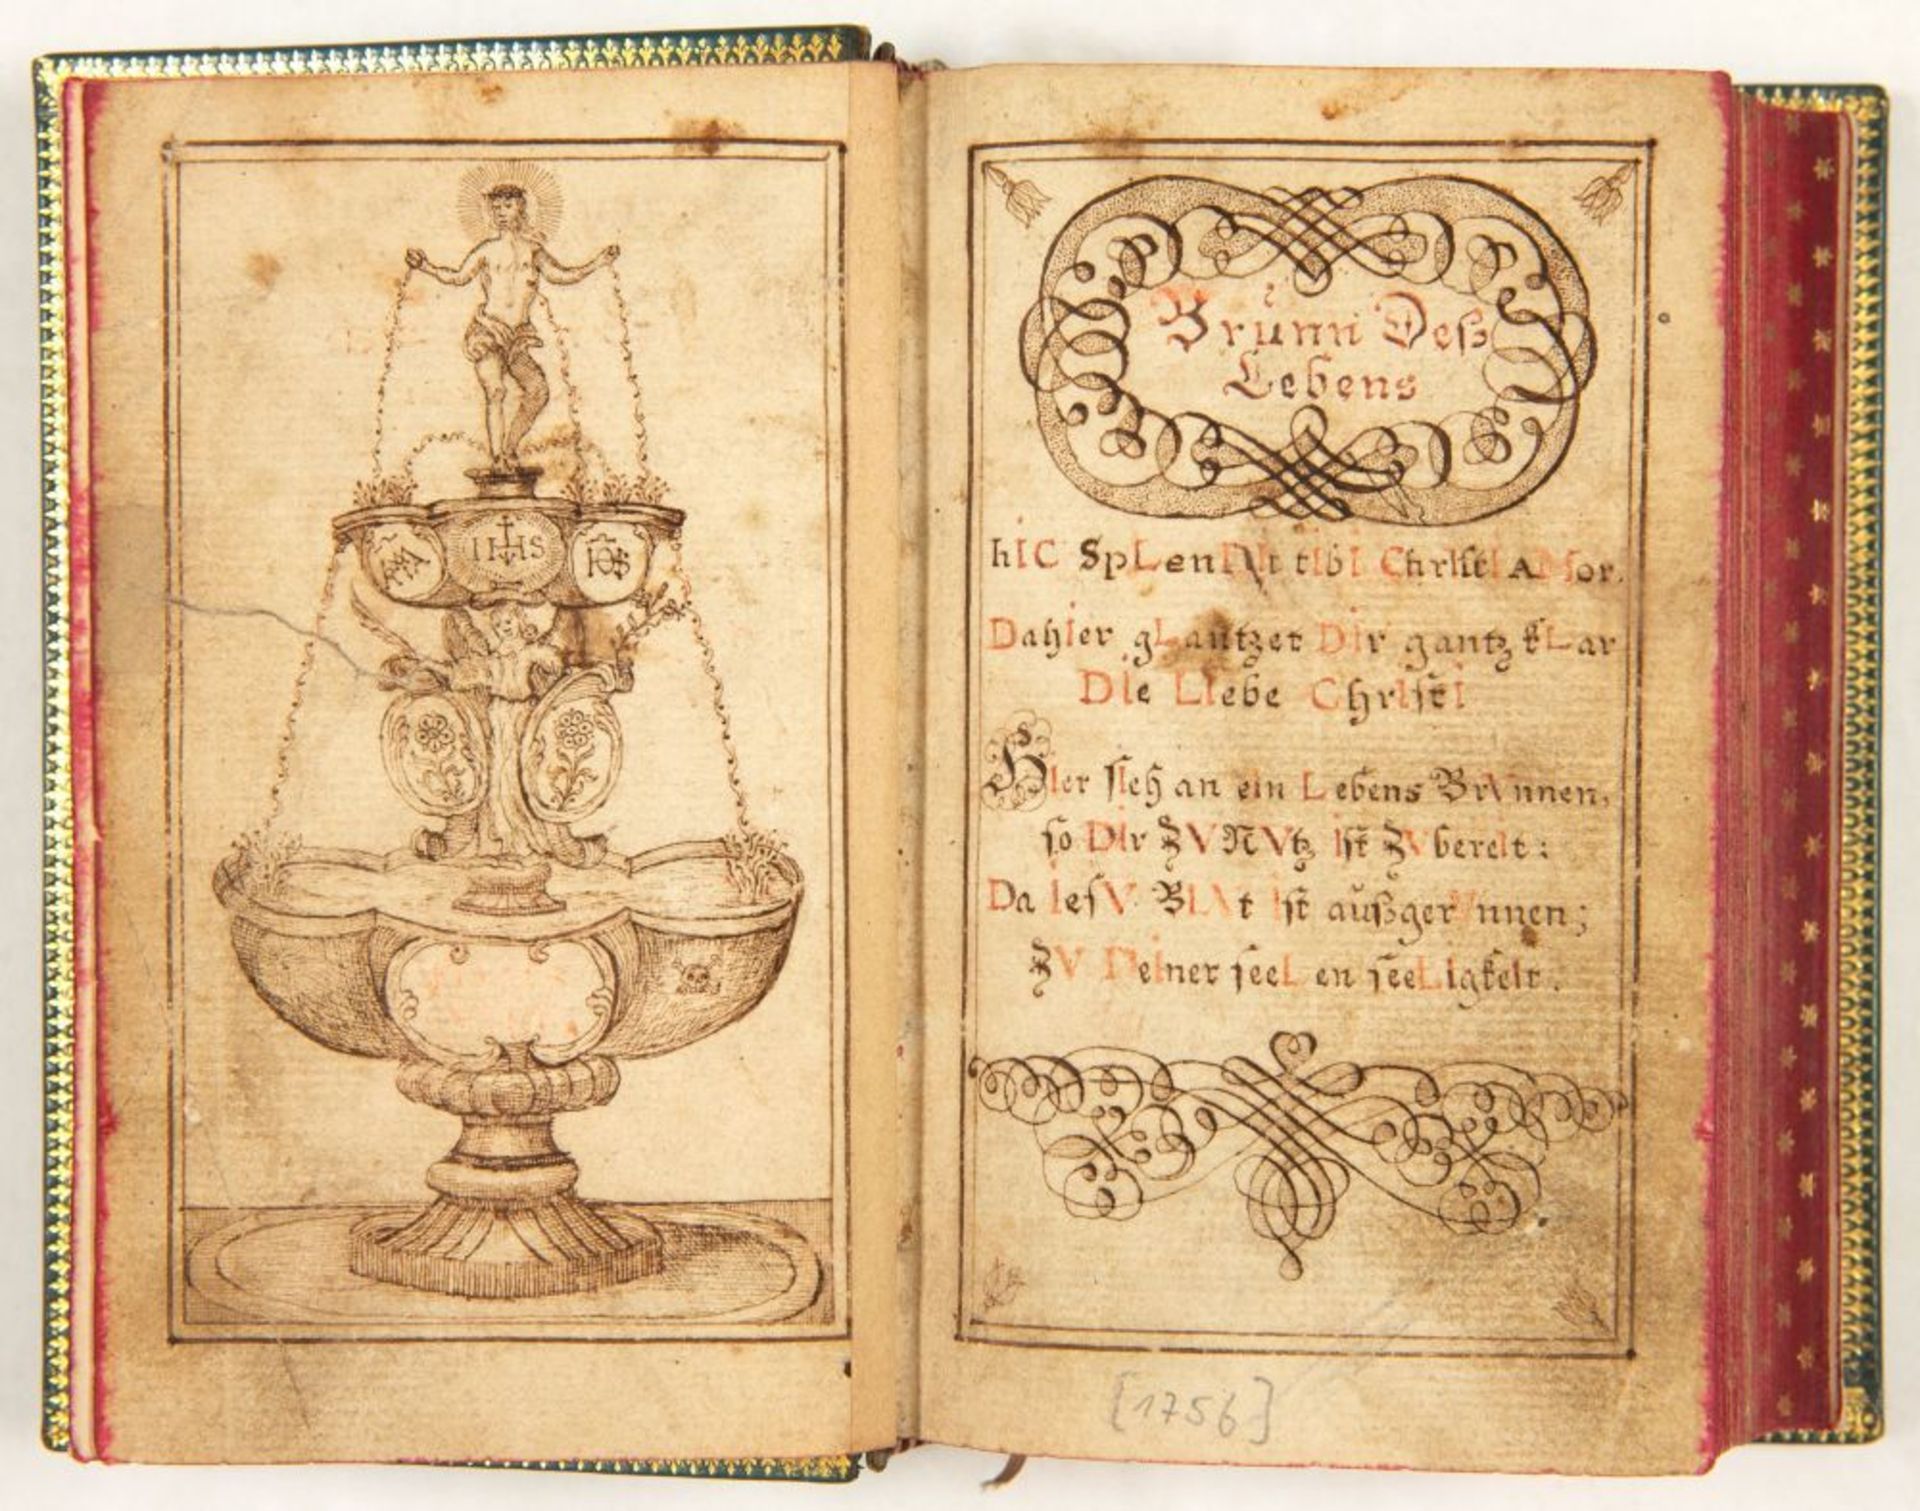 IHS
Brůnn Deß
Lebens
hIC SpLenDIt tIbI ChrIstI AMor.
DahIer gLantzet DIr gantz kLar
DIe LIebe ChrIstI
HIer sIeh an eIn Lebens BrVnnen,
so DIr ZV NVtz Ist ZVbereIt:
Da IesV BLVt Ist außgerVnnen;
ZV DeIner seeLen seeLIgkeIt.
[1756]